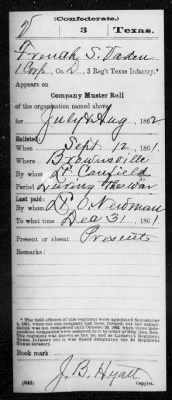 (Confederate.)
V 3 Texas.
French S. Vaden
Corp., Co. D, 3 Reg't Texas Infantry.*
Appears on
Company Muster Roll
of the organization named above
for July & Aug, 1862
Enlisted:
When Sept 12, 1861.
Where Brownsville
By whom Lt. Canfield
Period During the war
Last paid:
By whom Lt. O. Newman
To what time Dec 31, 1861.
Present or absent Present
Remarks:
Book mark:
J. B. Hyatt
(642) Copyist.